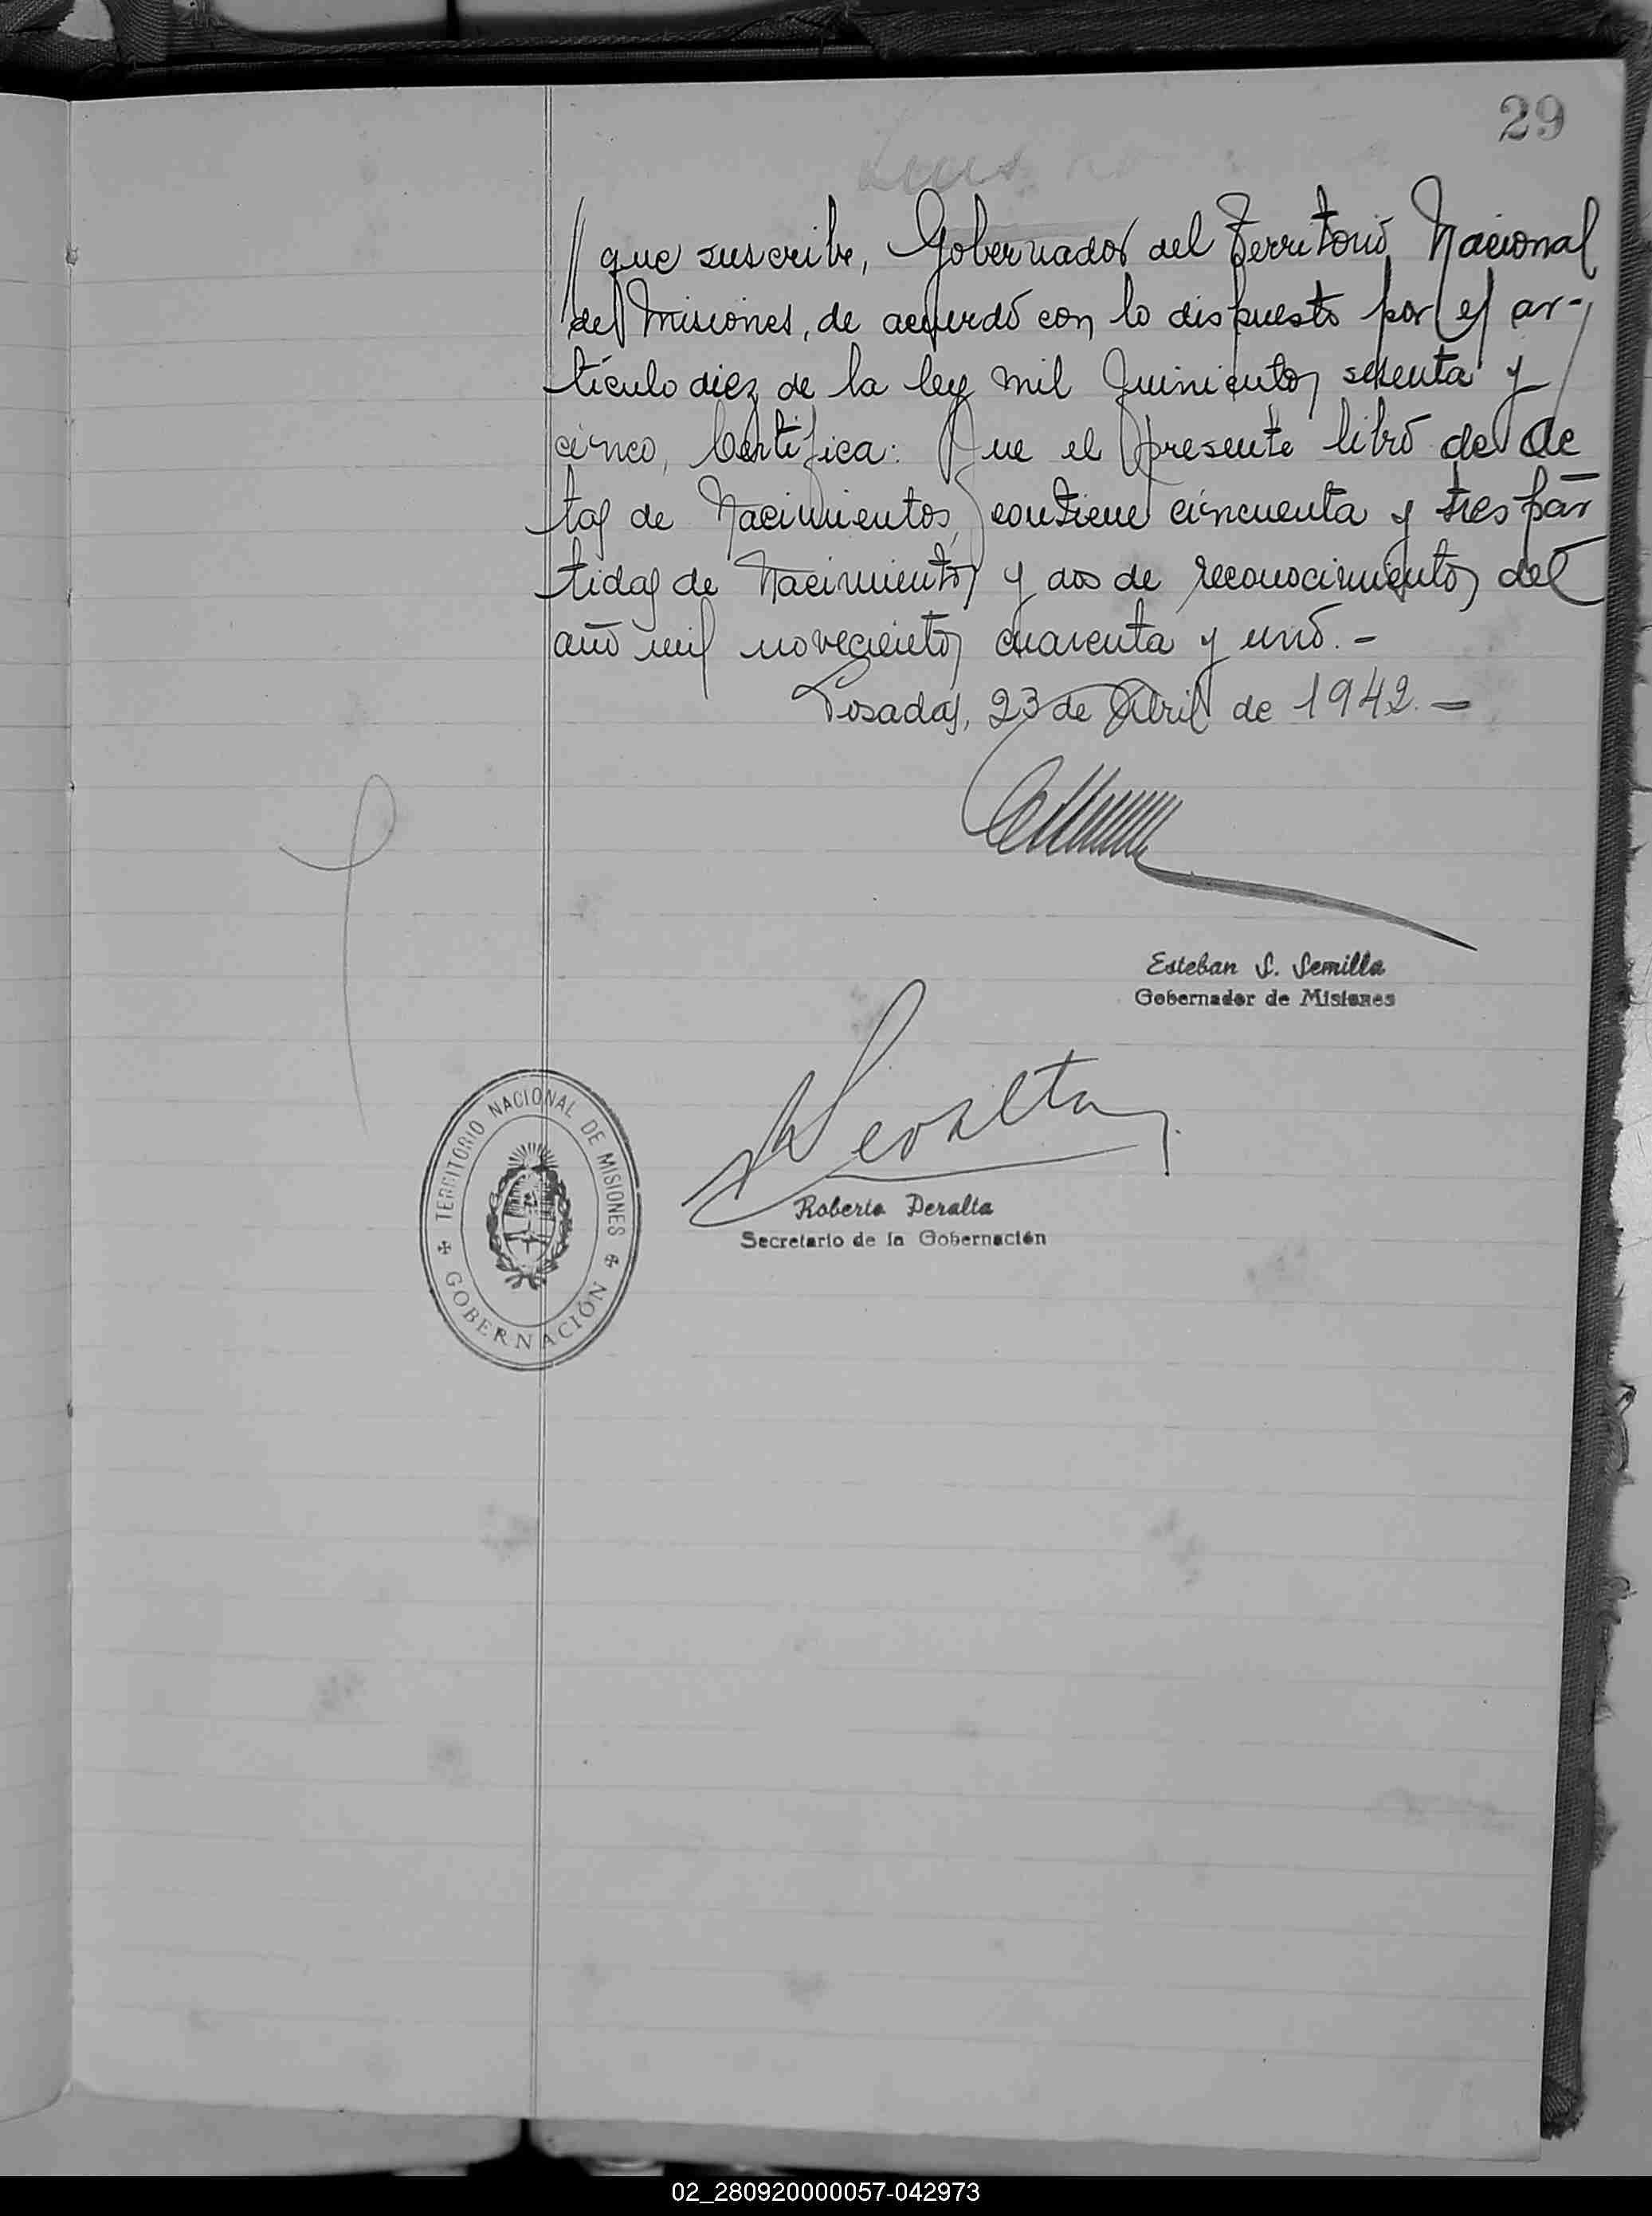 29
// que suscribe, Gobernador del Territorio Nacional
de Misiones, de acuerdo con lo dispuesto por el ar-
tículo diez de la ley mil quinientos sesenta y
cinco, Certifica: Que el presente libro de Ac
tas de Nacimientos, contiene cincuenta y tres par
tidas de Nacimientos y dos de reconocimientos del
año mil novecientos cuarenta y uno.-
Posadas, 23 de Abril de 1942.-
Esteban S. Semilla
Gobernador de Misiones
Peralta
Roberto Peralta
Secretario de la Gobernación
TERRITORIO NACIONAL DE MISIONES
GOBERNACIÓN
02_280920000057-042973